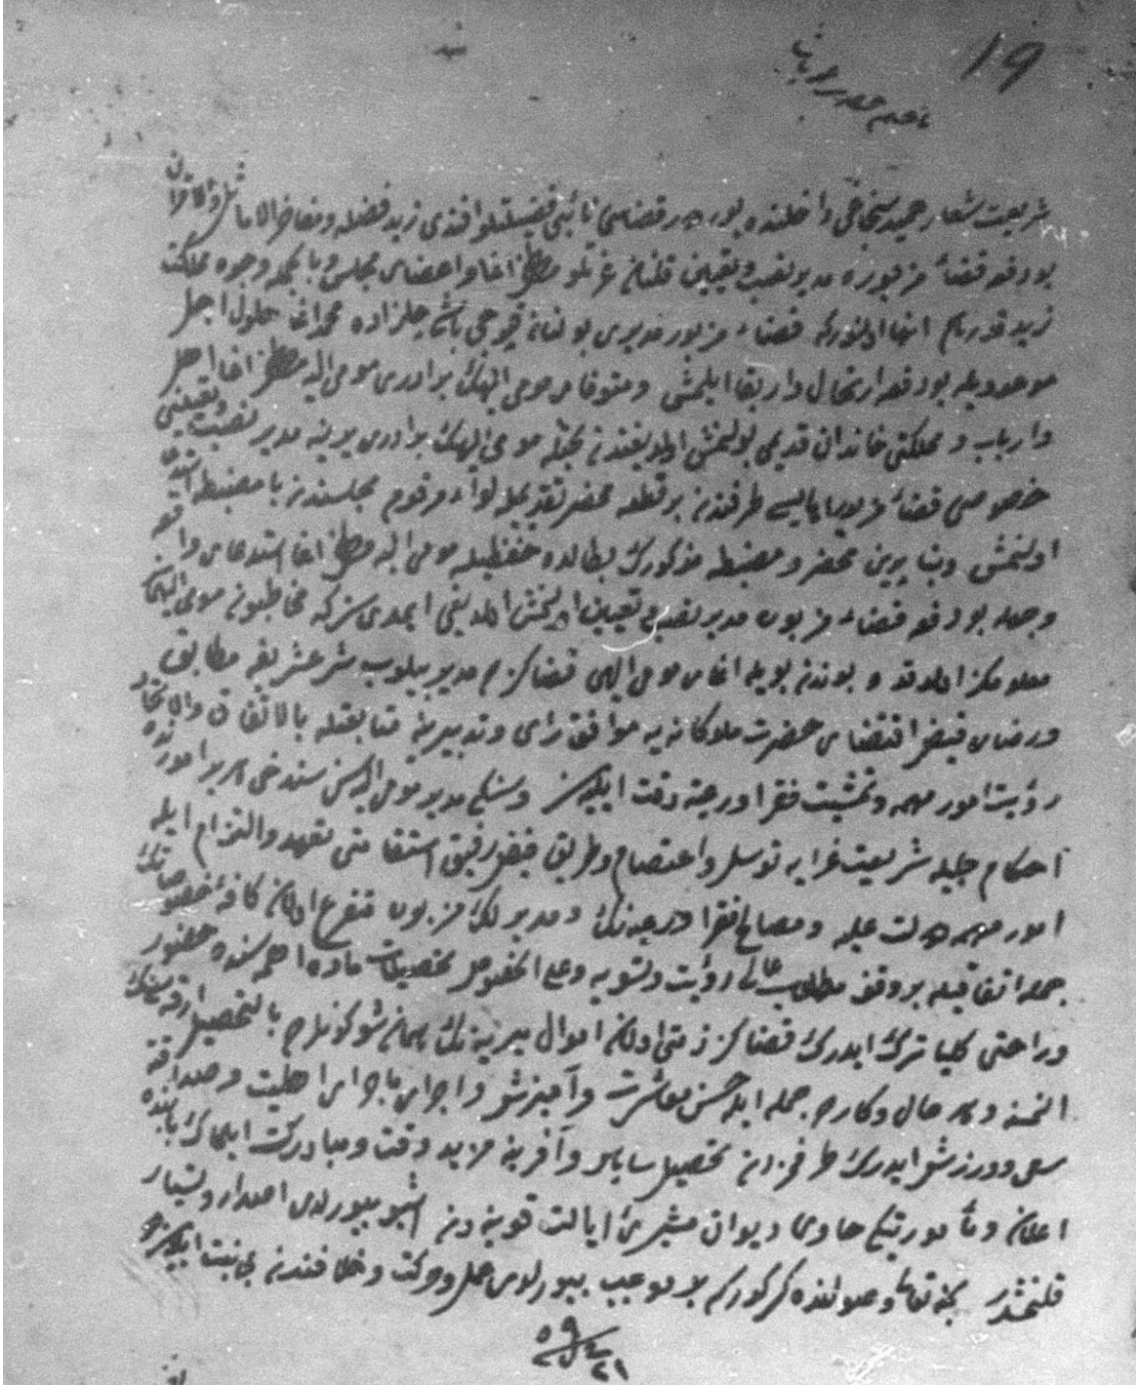 ١٩
شريعت شعار حميد سنجاغى داخلنده بوردر قضاسى نائبى فضيلتلو افندى زيد فضله ومفاخر الاماثل والاقران
بو دفعه قضاء مزبوره مدير نصب وتعيين قلنان مصطفى اغا واعضاى مجلس وبالجمله وجوه مملكت
زيد قدرهم انها اولنور كه قضاء مزبور مديرى بولنان قپوجى باشى زاده محمد اغا حلول اجل
موعوديله بو دفعه ارتحال دار بقا ايلمش ومتوفاى مومى اليهك برادرى مومى اليه مصطفى اغا اهل
وارباب ومملكتك خاندان قديمى بولنمش اولديغندن بحثله مومى اليهك برادرى يرينه مدير نصب وتعيينى
خصوصى قضاء مزبور اهاليسى طرفندن بر قطعه محضر تقديميله لواء مرقوم مجلسندن با مضبطه استدعا
اولنمش وبناء برين محضر ومضبطه مذكورك حفظيله مومى اليه مصطفى اغا استدعاى واقع
وجهله بو دفعه قضاء مزبوره مدير نصب وتعيين اولنمش اولديغى ايمدى سز كه مخاطبون مومى اليهم
معلومكز اولدقده بوندن بويله اغاى مومى اليهى قضاكزه مدير بيلوب شرع شريفه مطابق
ورضاى فيض اقتضاى حضرت ملوكانه يه موافق راى وتدبيرينه متابعتله بالاتفاق والاتحاد
رؤيت امور مهمه وتمشيت فقرا ورعيته دقت ايليه سز وسنكه مدير مومى اليهسن سن دخى هر بر امورنده
احكام جليله شريعت غرايه توسل واعتصام وطريق استقامتى تعهد والتزام ايله
امور مهمه دولت عليه ومصالح فقرا ورعيتك ومديرلك مزبوره متفرع اولان كافه خصوصاتك
جمله اتفاقيله بر وفق مطلوب عالى رؤيت وتسويه وعلى الخصوص تحصيلات ماده اهمه سنده حضور
وراحتى كليا ترك ايدرك قضاكز ذمتى اولان اموال ميريه نك همان شو كونلرده بالتحصيل
وهر حال وكارده جمله ايله حسن معاشرت وآميزش واجراى ماجراى اهليت وصداقته
سعى وورزش ايدرك طرفمزدن تحصيل وآفرينه مزيد دقت ومبادرت ايلمك بابنده
اعلان ومأموريتكى حاوى ديوان مشيرى ايالت قونيه دن اشبو بيورلدى اصدار وتسيار
قلنمشدر بمنه تعالى وصولنده كركدركه بر موجب بيورلدى عمل وحركت وخلافندن مجانبت ايليه سز
٥٩